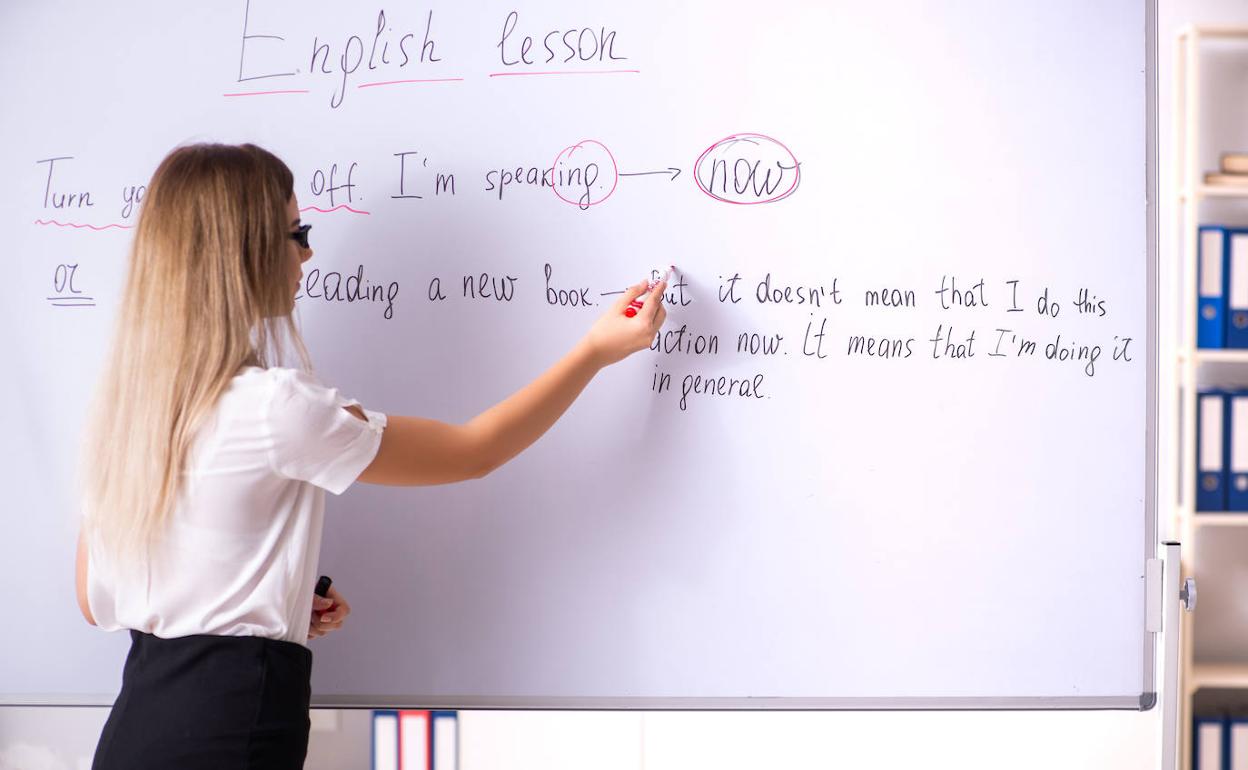 English lesson
Turn off. I'm speaking. → now
or reading a new book. but it doesn't mean that I do this
action now. It means that I'm doing it
in general.